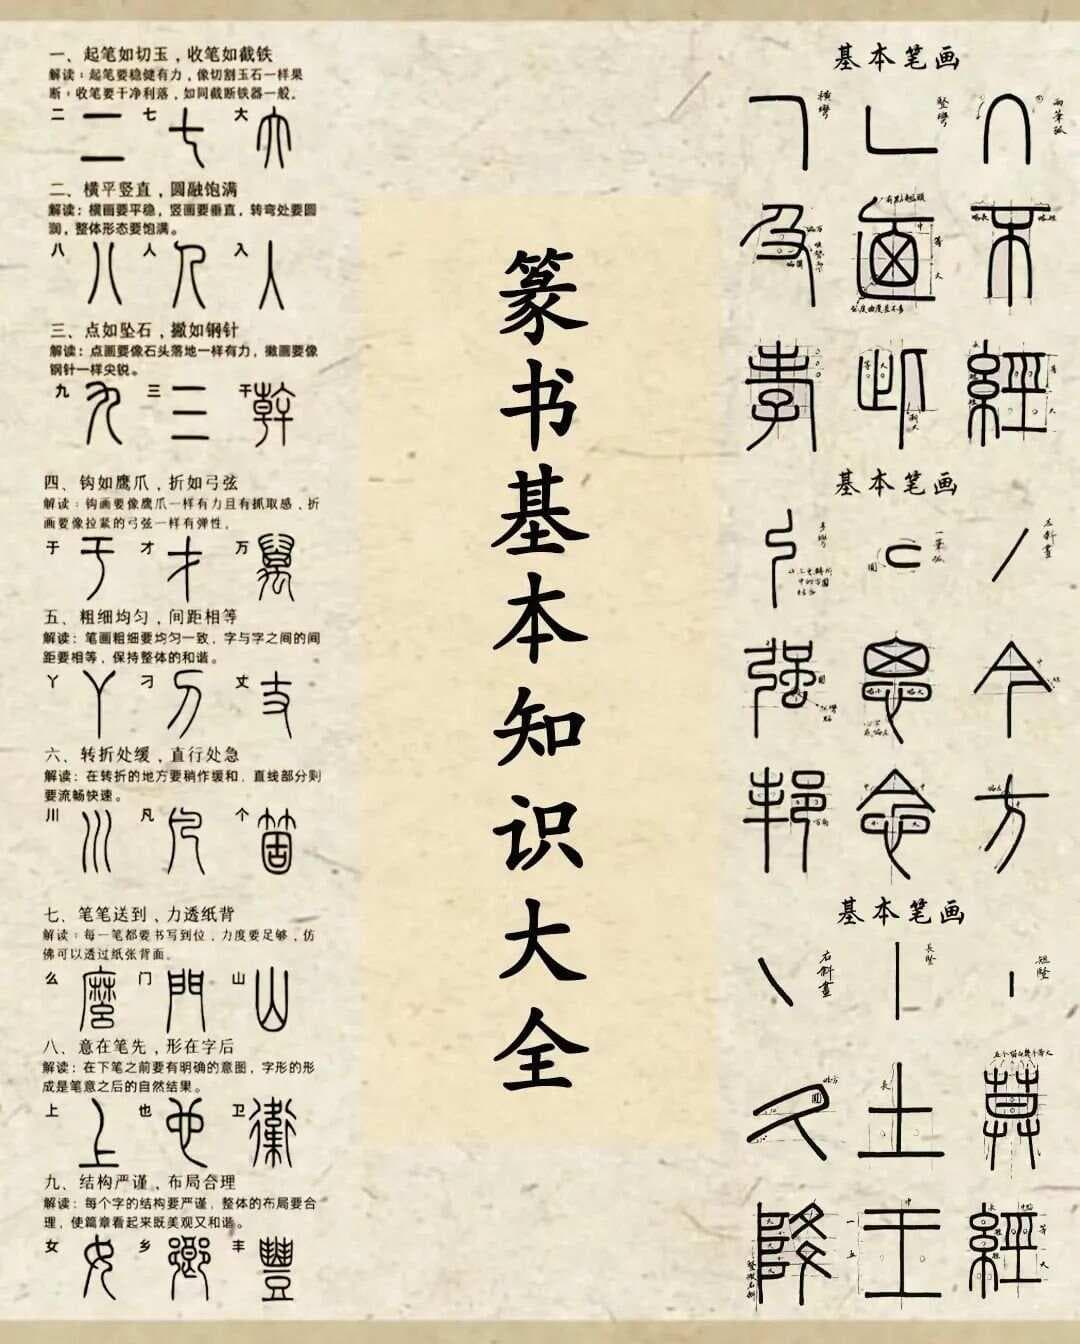 一、起笔如切玉，收笔如截铁
解读：起笔要稳健有力，像切割玉石一样果
断；收笔要干净利落，如同截断铁器一般。
二 七 大
二、横平竖直，圆融饱满
解读：横画要平稳，竖画要垂直，转弯处要圆
润，整体形态要饱满。
八 人 入
三、点如坠石，撇如钢针
解读：点画要像石头落地一样有力，撇画要像
钢针一样尖锐。
九 三 干
四、钩如鹰爪，折如弓弦
解读：钩画要像鹰爪一样有力且有抓取感，折
画要像拉紧的弓弦一样有弹性。
于 才 万
五、粗细均匀，间距相等
解读：笔画粗细要均匀一致，字与字之间的间
距要相等，保持整体的和谐。
丫 刁 丈
六、转折处缓，直行处急
解读：在转折的地方要稍作缓和，直线部分则
要流畅快速。
川 凡 个
七、笔笔送到，力透纸背
解读：每一笔都要书写到位，力度要足够，仿
佛可以透过纸张背面。
么 门 山
八、意在笔先，形在字后
解读：在下笔之前要有明确的意图，字形的形
成是笔意之后的自然结果。
上 也 卫
九、结构严谨，布局合理
解读：每个字的结构要严谨，整体的布局要合
理，使篇章看起来既美观又和谐。
女 乡 丰
篆书基本知识大全
基本笔画
横彎 竪彎 兩筆弧
基本笔画
一筆弧 左斜畫
强 恩 今
邦 念 方
基本笔画
右斜畫 長竪 短竪
久 土 莫
王 經